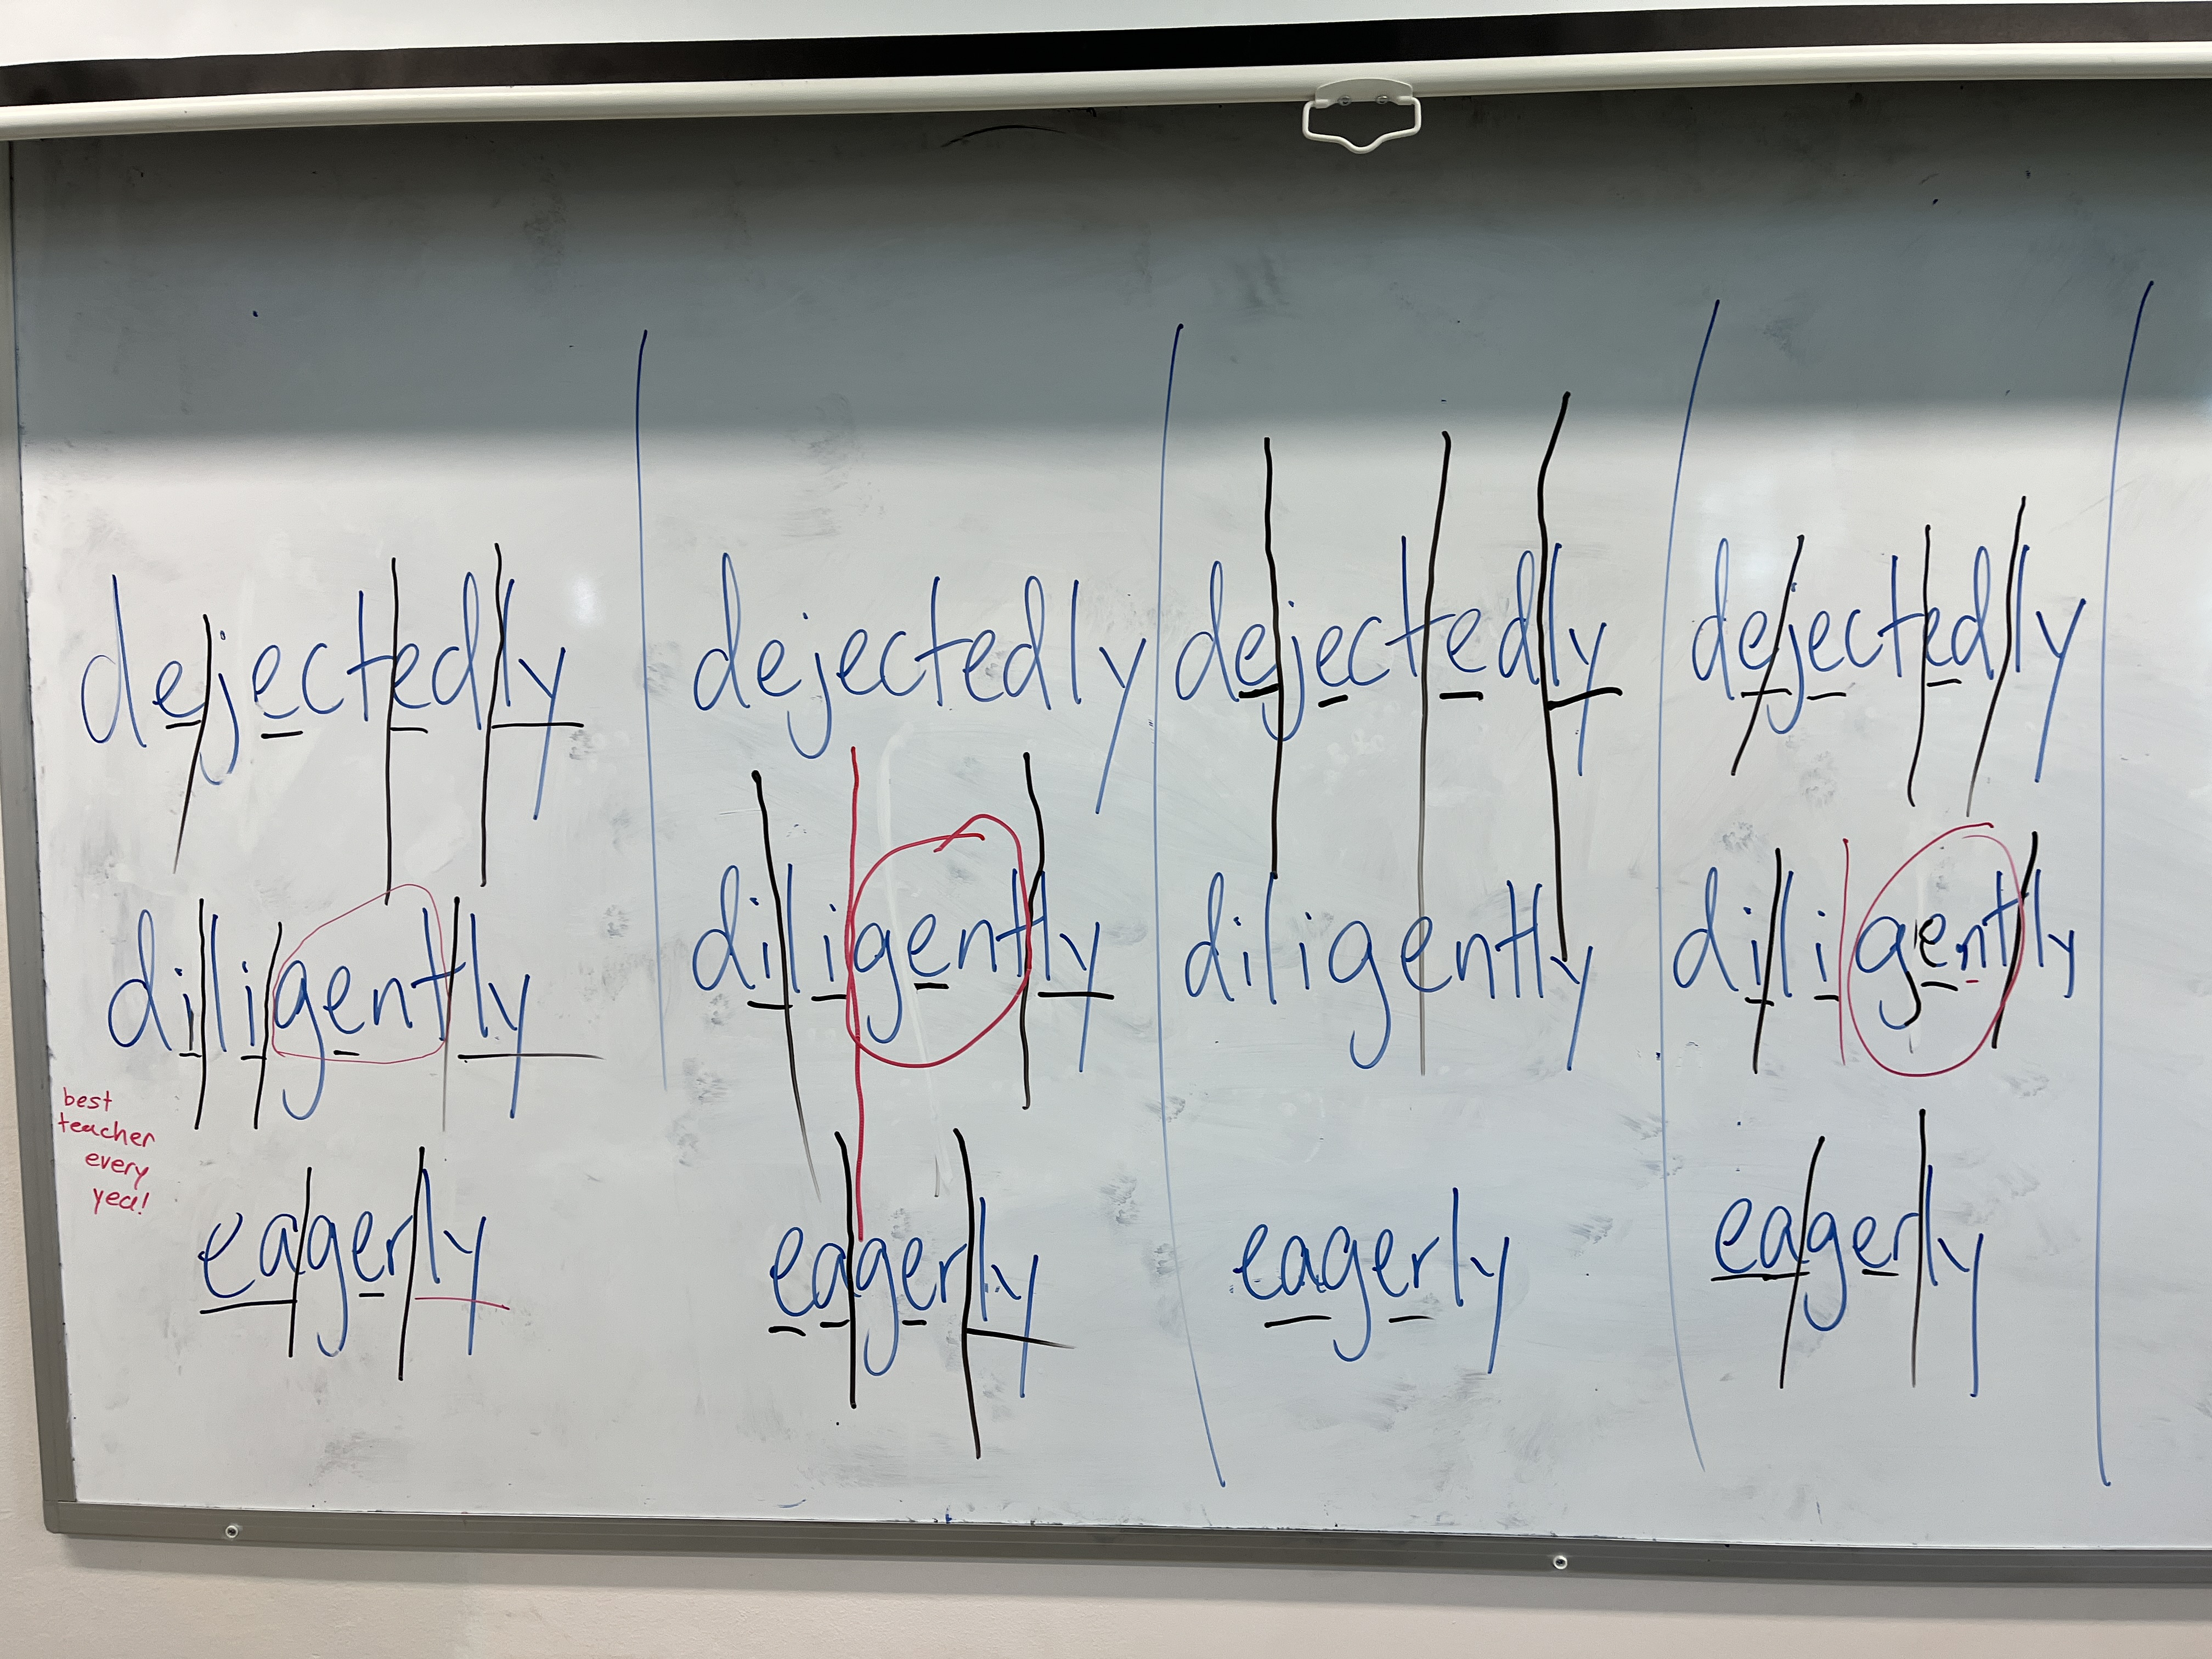 dejectedly
diligently
eagerly
best
teacher
every
yea!
dejectedly
diligently
eagerly
dejectedly
diligently
eagerly
dejectedly
diligently
eagerly